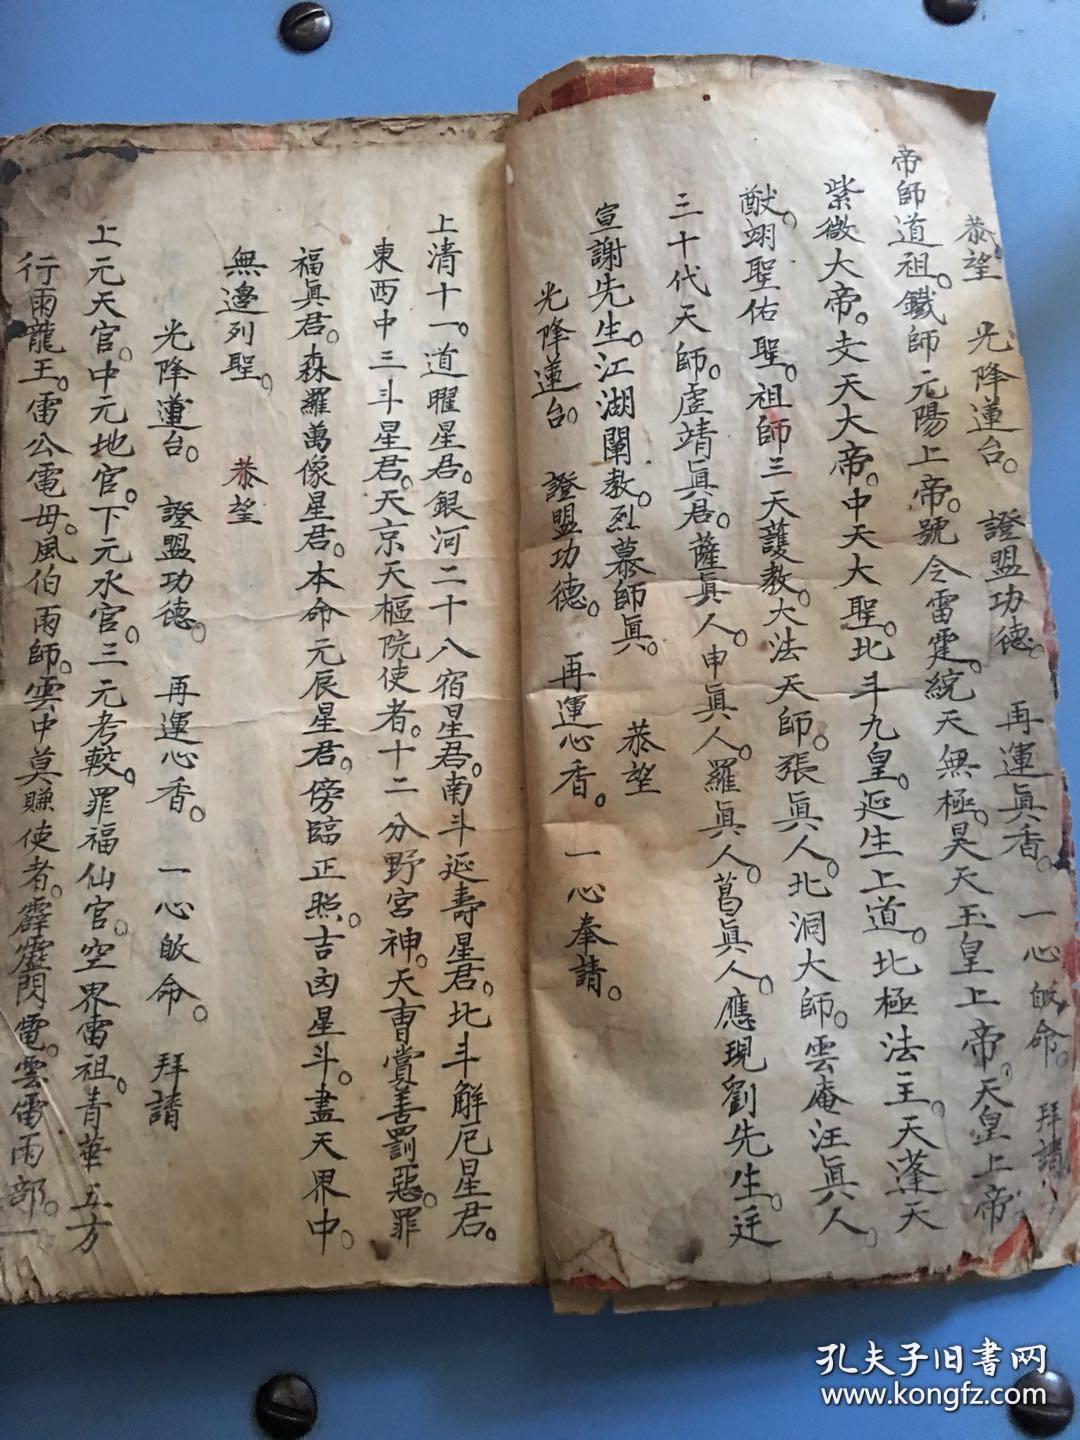 恭望　光降蓮台。　證盟功德。　再運真香。　一心皈命。　拜請
帝師道祖。鐵師元陽上帝。號令雷霆。統天無極。昊天玉皇上帝。天皇上帝
紫微大帝。支天大帝。中天大聖。北斗九皇。延生上道。北極法王。天蓬天
猷。翊聖佑聖。祖師三天護教。大法天師。張眞人。北洞大師。雲庵汪眞人
三十代天師。虛靖眞君。薩眞人。申眞人。羅眞人。葛眞人。應現劉先生。廷
宣謝先生。江湖闡教。烈慕師眞。　恭望
光降蓮台。　證盟功德。　再運心香。　一心奉請。
上清十一。道曜星君。銀河二十八宿星君。南斗延壽星君。北斗解厄星君。
東西中三斗星君。天京天樞院使者。十二分野宮神。天曹賞善罰惡。罪
福眞君。森羅萬像星君。本命元辰星君。傍臨正照。吉凶星斗。盡天界中。
無邊列聖。　恭望
光降蓮台。　證盟功德。　再運心香。　一心皈命。　拜請
上元天官。中元地官。下元水官。三元考較。罪福仙官。空界雷祖。青華五方
行雨龍王。雷公電母。風伯雨師。雲中莫賺使者。霹靂閃電。雲雷雨部。一
孔夫子旧书网
www.kongfz.com